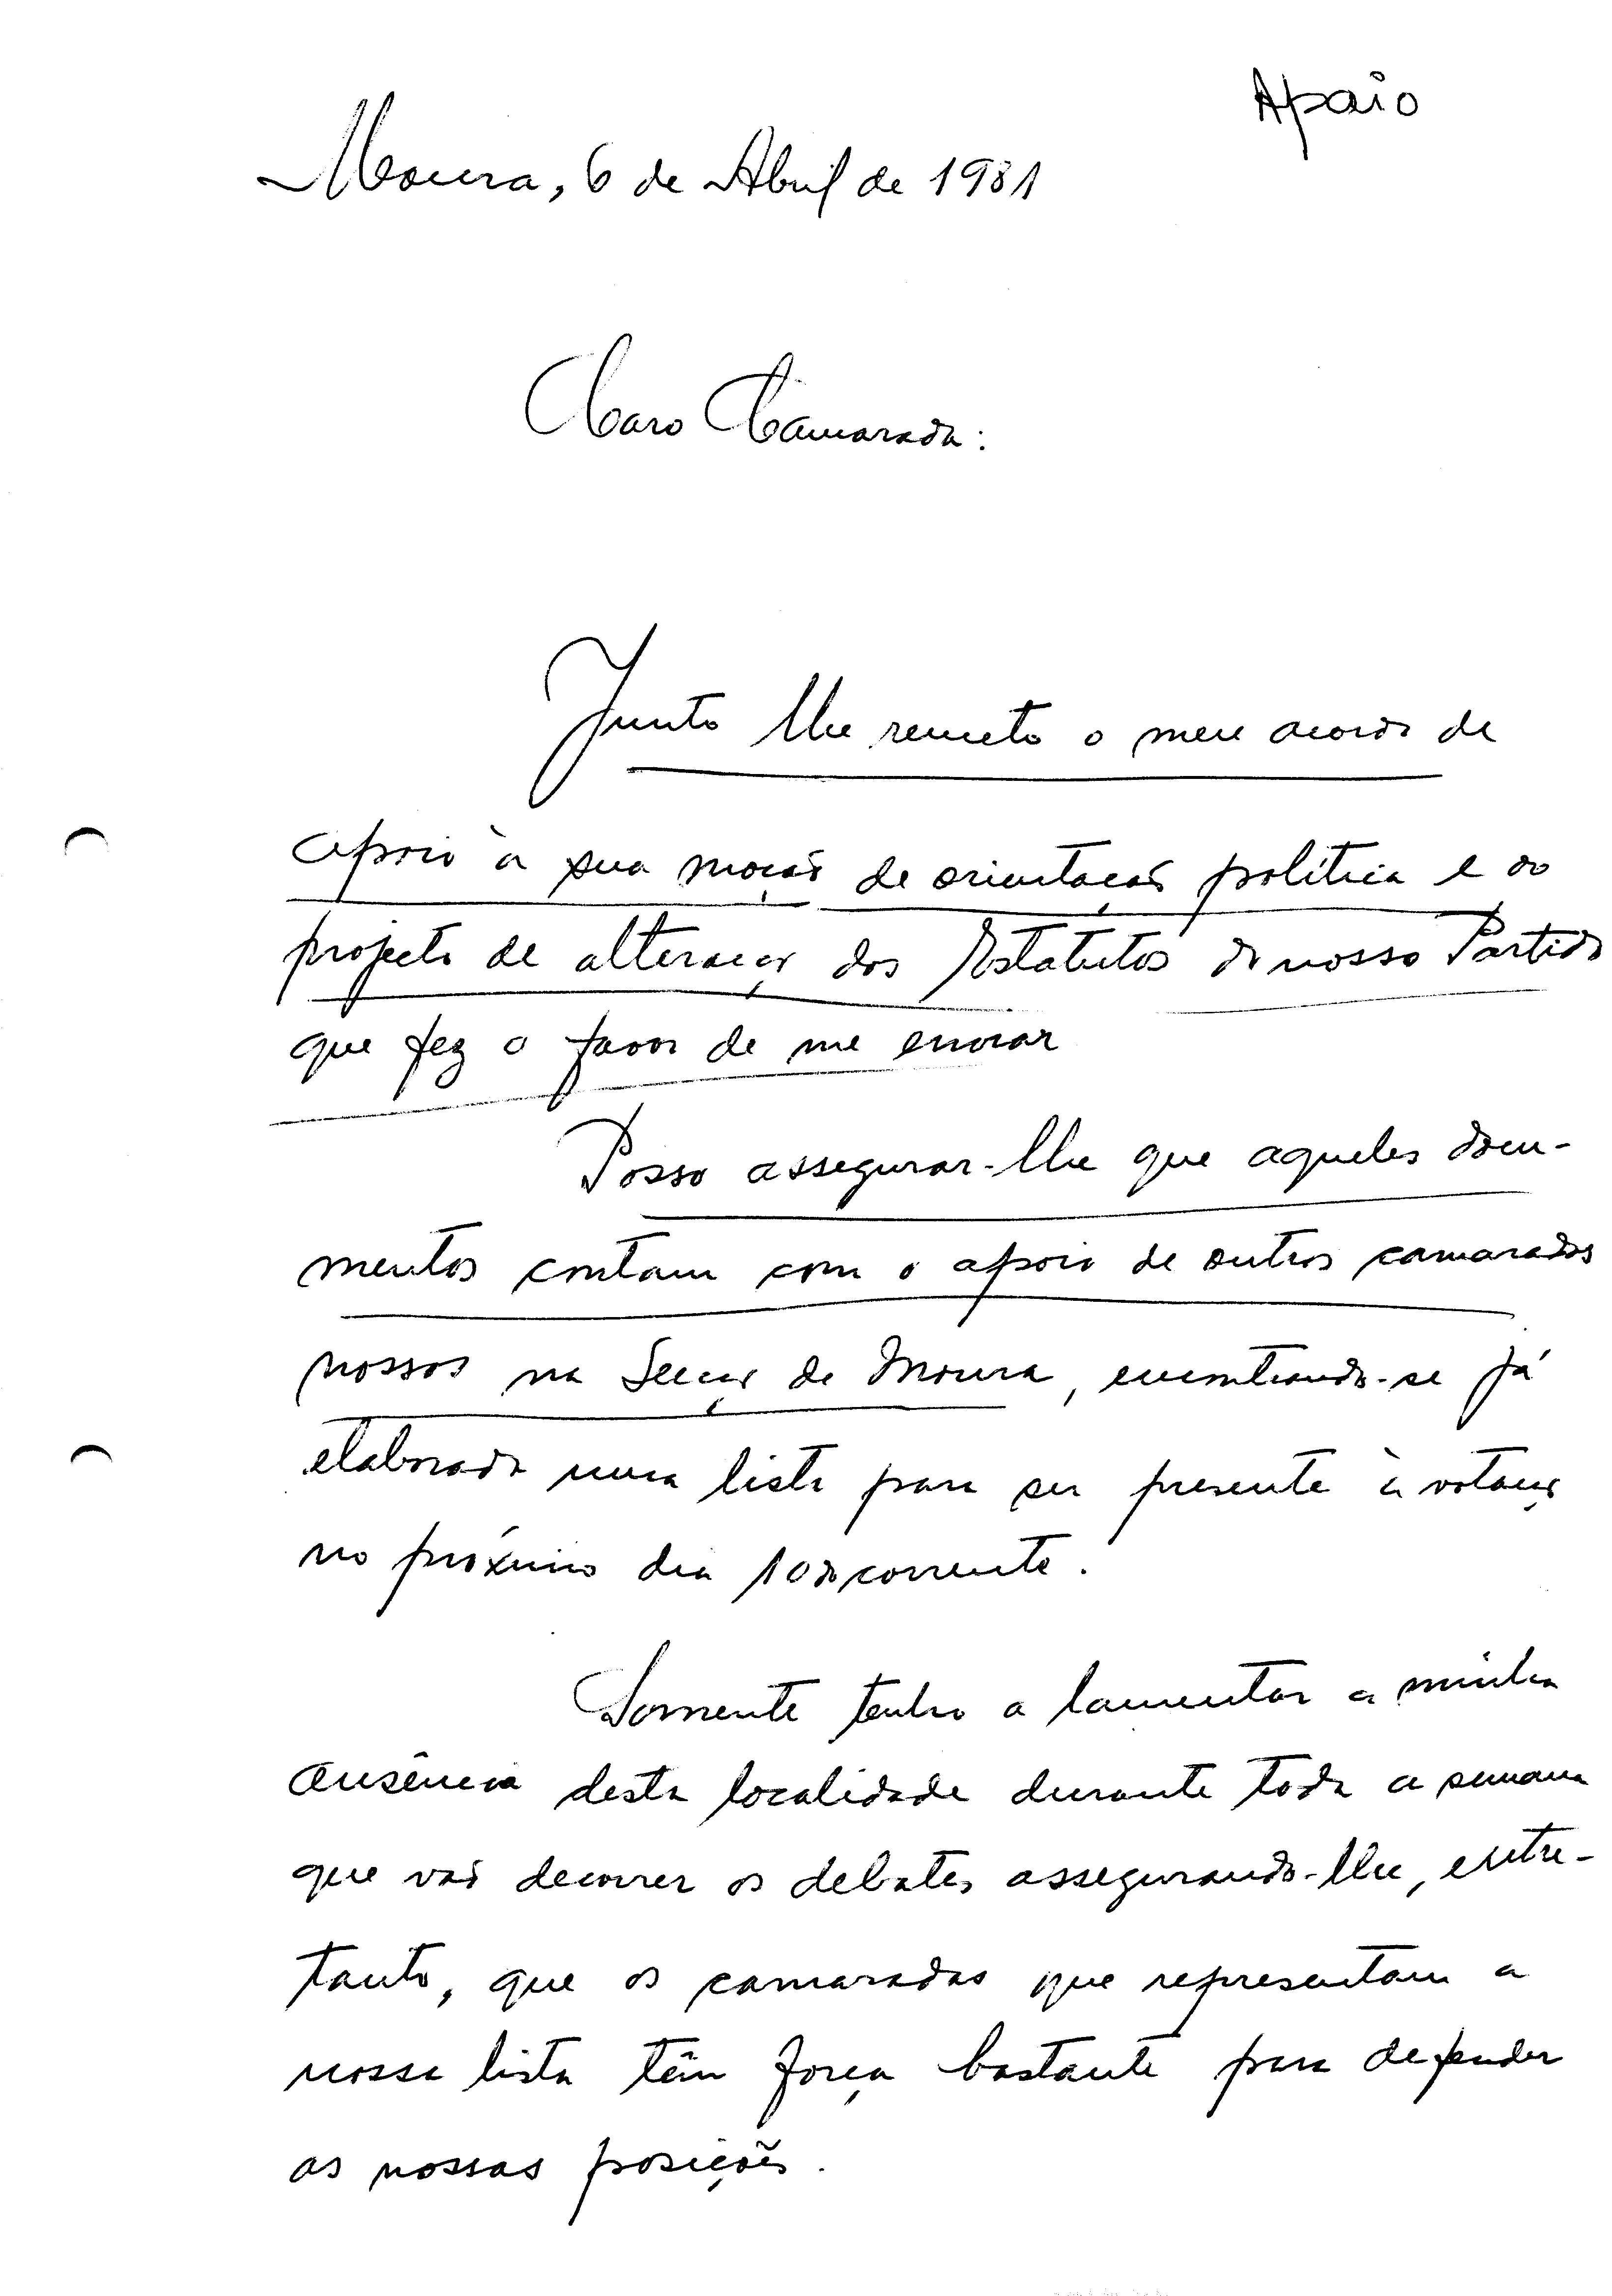 Apoio
Moura, 6 de Abril de 1981
Caro Camarada:
Junto lhe remeto o meu acordo de
apoio à sua moção de orientação política e ao
projecto de alteração dos Estatutos do nosso Partido
que fez o favor de me enviar
Posso assegurar-lhe que aqueles docu-
mentos contam com o apoio de outros camaradas
nossos na Secção de Moura, encontrando-se já
elaborada uma lista para ser presente à votação
no próximo dia 10 do corrente.
Somente tenho a lamentar a minha
ausência desta localidade durante toda a semana
que vai decorrer os debates assegurando-lhe, entre-
tanto, que os camaradas que representam a
nossa lista têm força bastante para defender
as nossas posições.